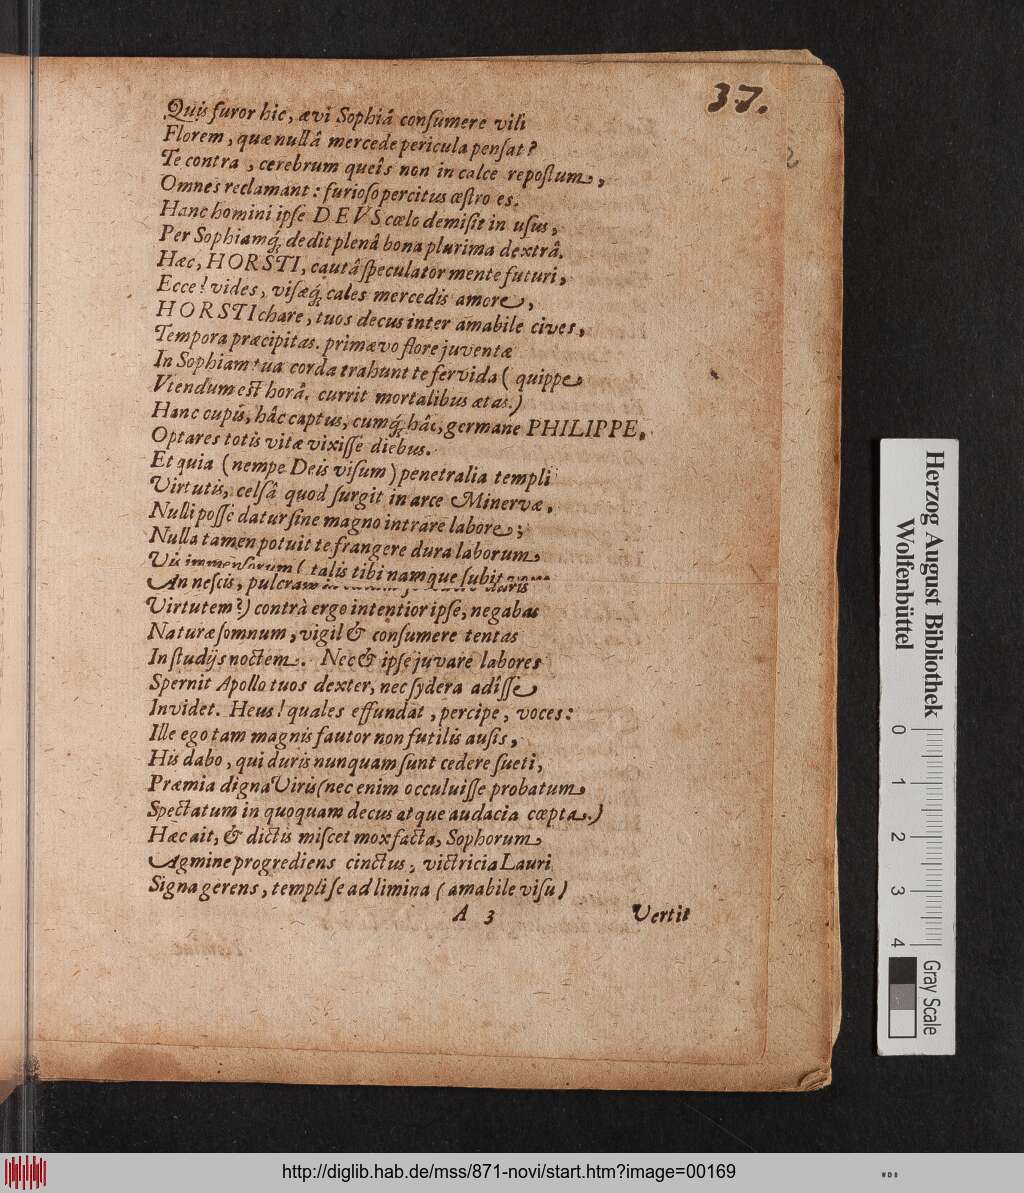 37.
2
Quis furor hic, ævi Sophiâ consumere vili
Florem, quæ nullâ mercede pericula pensat?
Te contra, cerebrum queîs non in calce repostum,
Omnes reclamant: furioso percitus œstro es.
Hanc homini ipse DEVS cœlo demisit in usus,
Per Sophiamq́; dedit plenâ bona plurima dextrâ.
Hæc, HORSTI, cautâ speculator mente futuri,
Ecce! vides, visæq́; cales mercedis amore,
HORSTI chare, tuos decus inter amabile cives,
Tempora præcipitas. primævo flore juventæ
In Sophiam tua corda trahunt te fervida (quippe
Vtendum est horâ, currit mortalibus ætas.)
Hanc cupis, hâc captus, cumq́; hâc, germane PHILIPPE,
Optares totis vitæ vixisse diebus.
Et quia (nempe Deis visum) penetralia templi
Virtutis, celsâ quod surgit in arce Minervæ,
Nulli posse datur sine magno intrare labore;
Nulla tamen potuit te frangere dura laborum
Vis immensorum (talis tibi namque subit
An nescis, pulcram duris
Virtutem?) contrà ergo intentior ipse, negabas
Naturæ somnum, vigil & consumere tentas
In studijs noctem. Nec & ipse juvare labores
Spernit Apollo tuos dexter, nec sydera adîsse
Invidet. Heus! quales effundat, percipe, voces:
Ille ego tam magnis fautor non futilis ausis,
His dabo, qui duris nunquam sunt cedere sueti,
Præmia digna Viris (nec enim occuluisse probatum
Spectatum in quoquam decus atque audacia cœpta.)
Hæc ait, & dictis miscet mox facta, Sophorum
Agmine progrediens cinctus, victricia Lauri
Signa gerens, templi se ad limina (amabile visu)
A 3 Vertit
Herzog August Bibliothek
Wolfenbüttel
0 1 2 3 4
Gray Scale
http://diglib.hab.de/mss/871-novi/start.htm?image=00169
WDB